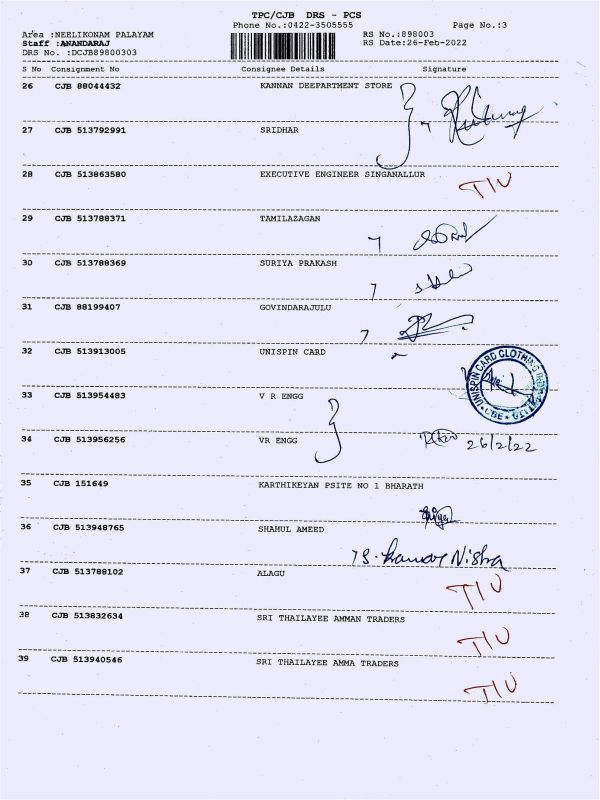 TPC/CJB DRS - PCS
Phone No.:0422-3505555 Page No.:3
Area :NEELIKONAM PALAYAM RS No.:898003
Staff :ANANDARAJ RS Date:26-Feb-2022
DRS No. :DCJB89800303
S No Consignment No Consignee Details Signature
26 CJB 88044432 KANNAN DEEPARTMENT STORE
27 CJB 513792991 SRIDHAR
28 CJB 513863580 EXECUTIVE ENGINEER SINGANALLUR
TIU
29 CJB 513788371 TAMILAZAGAN
30 CJB 513788369 SURIYA PRAKASH
31 CJB 88199407 GOVINDARAJULU
32 CJB 513913005 UNISPIN CARD
UNISPIN CARD CLOTHING
CBE
33 CJB 513954483 V R ENGG
34 CJB 513956256 VR ENGG
26/2/22
35 CJB 151649 KARTHIKEYAN PSITE NO 1 BHARATH
36 CJB 513948765 SHAHUL AMEED
Nisha
37 CJB 513788102 ALAGU
TIU
38 CJB 513832634 SRI THAILAYEE AMMAN TRADERS
TIU
39 CJB 513940546 SRI THAILAYEE AMMA TRADERS
TIU